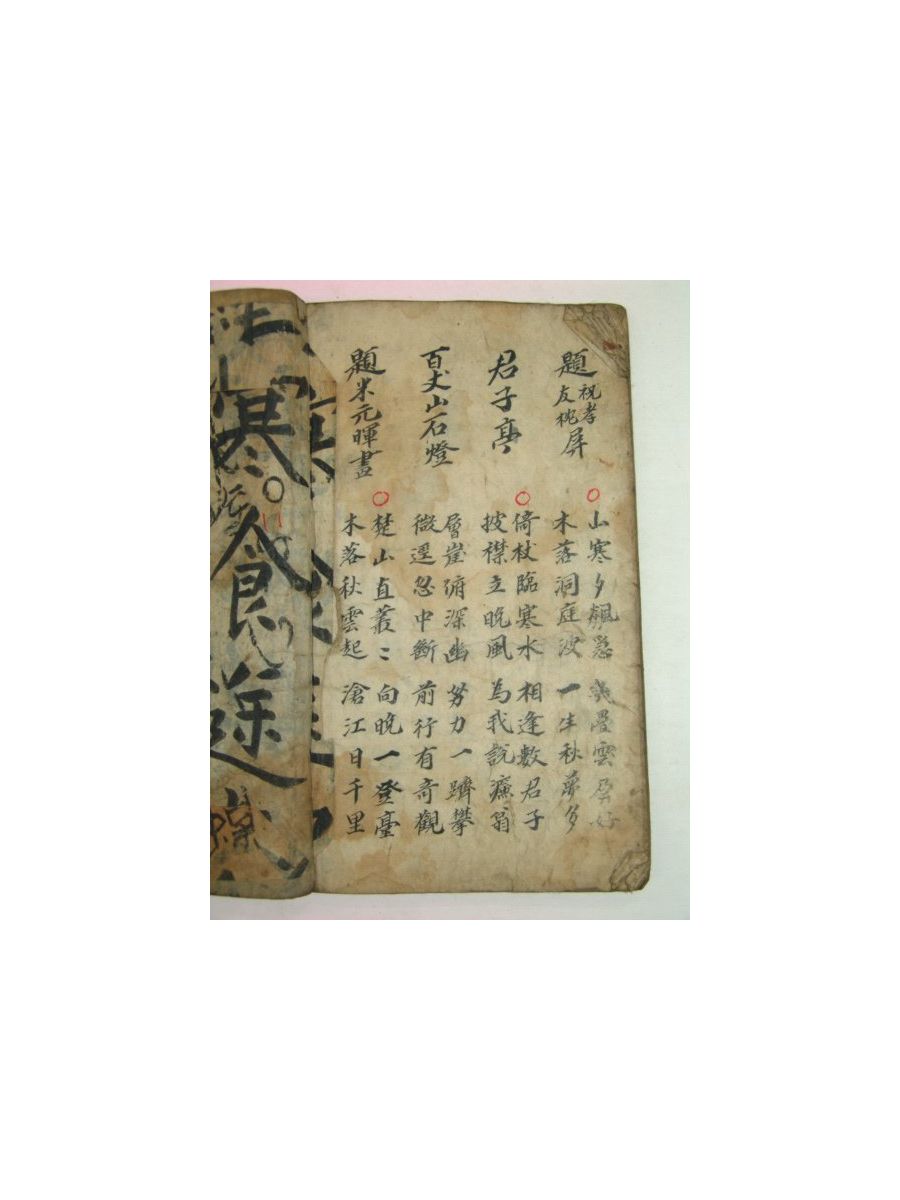 題祝孝友枕屏
山寒夕飆急 幾疊雲屏好
木落洞庭波 一生秋夢多
君子亭
倚杖臨寒水 相逢數君子
披襟立晚風 為我說濂翁
百丈山石燈
層崖俯深幽 努力一躋攀
微逕忽中斷 前行有奇觀
題米元暉畫
楚山直叢〻 向晚一登臺
木落秋雲起 滄江日千里
寒食途